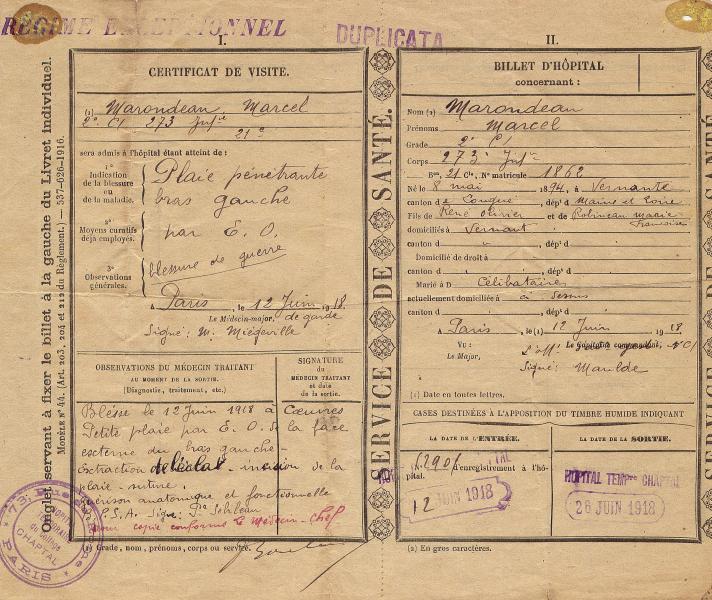 RÉGIME EXCEPTIONNEL
DUPLICATA
Onglet servant à fixer le billet à la gauche du Livret individuel.
MODÈLE N° 44. (Art. 203, 204 et 212 du Règlement.) — 537-626-1916.
I.
CERTIFICAT DE VISITE.
(1) Marondeau, Marcel
2e Cl 273 Infie
21e
sera admis à l'hôpital étant atteint de :
1°
Indication
de la blessure
ou
de la maladie.
Plaie pénétrante
bras gauche
2°
Moyens curatifs
déjà employés.
par E. O.
3°
Observations
générales.
blessure de guerre
A Paris, le 12 Juin 1918
Le Médecin-major, de garde
Signé: M. Miégeville
OBSERVATIONS DU MÉDECIN TRAITANT
AU MOMENT DE LA SORTIE.
(Diagnostic, traitement, etc.)
SIGNATURE
du
MÉDECIN TRAITANT
et date
de la sortie.
Blessé le 12 Juin 1918 à Cœuvres
Petite plaie par E. O. de la face
externe du bras gauche -
Extraction de l'éclat - incision de la
plaie - suture.
guérison anatomique et fonctionnelle
P.S.A. Signé: Dr Sébileau
Pour copie conforme le Médecin-Chef
(1) Grade, nom, prénoms, corps ou service.
PARIS
CHAPTAL
SERVICE DE SANTÉ.
II.
BILLET D'HÔPITAL
concernant :
Nom (2) Marondeau
Prénoms Marcel
Grade 2e Cl
Corps 273e Infie
Bon, 21 Cie, N° matricule 1862
Né le 8 mai 1894, à Vernante
canton de Longué, dépt d Maine et Loire
Fils de René olivier et de Robineau marie
Françoise
domiciliés à Vernant
canton d , dépt d
Domicilié de droit à
canton d , dépt d
Marié à D Célibataire
actuellement domiciliée à
canton d , dépt d
A Paris, le (1) 12 Juin 1918
VU :
Le Major,
Signé: Maulde
(1) Date en toutes lettres.
CASES DESTINÉES À L'APPOSITION DU TIMBRE HUMIDE INDIQUANT
LA DATE DE L'ENTRÉE.
LA DATE DE LA SORTIE.
N. 2901 d'enregistrement à l'hô-
pital.
12 JUIN 1918
HOPITAL TEMPre CHAPTAL
26 JUIN 1918
(2) En gros caractères.